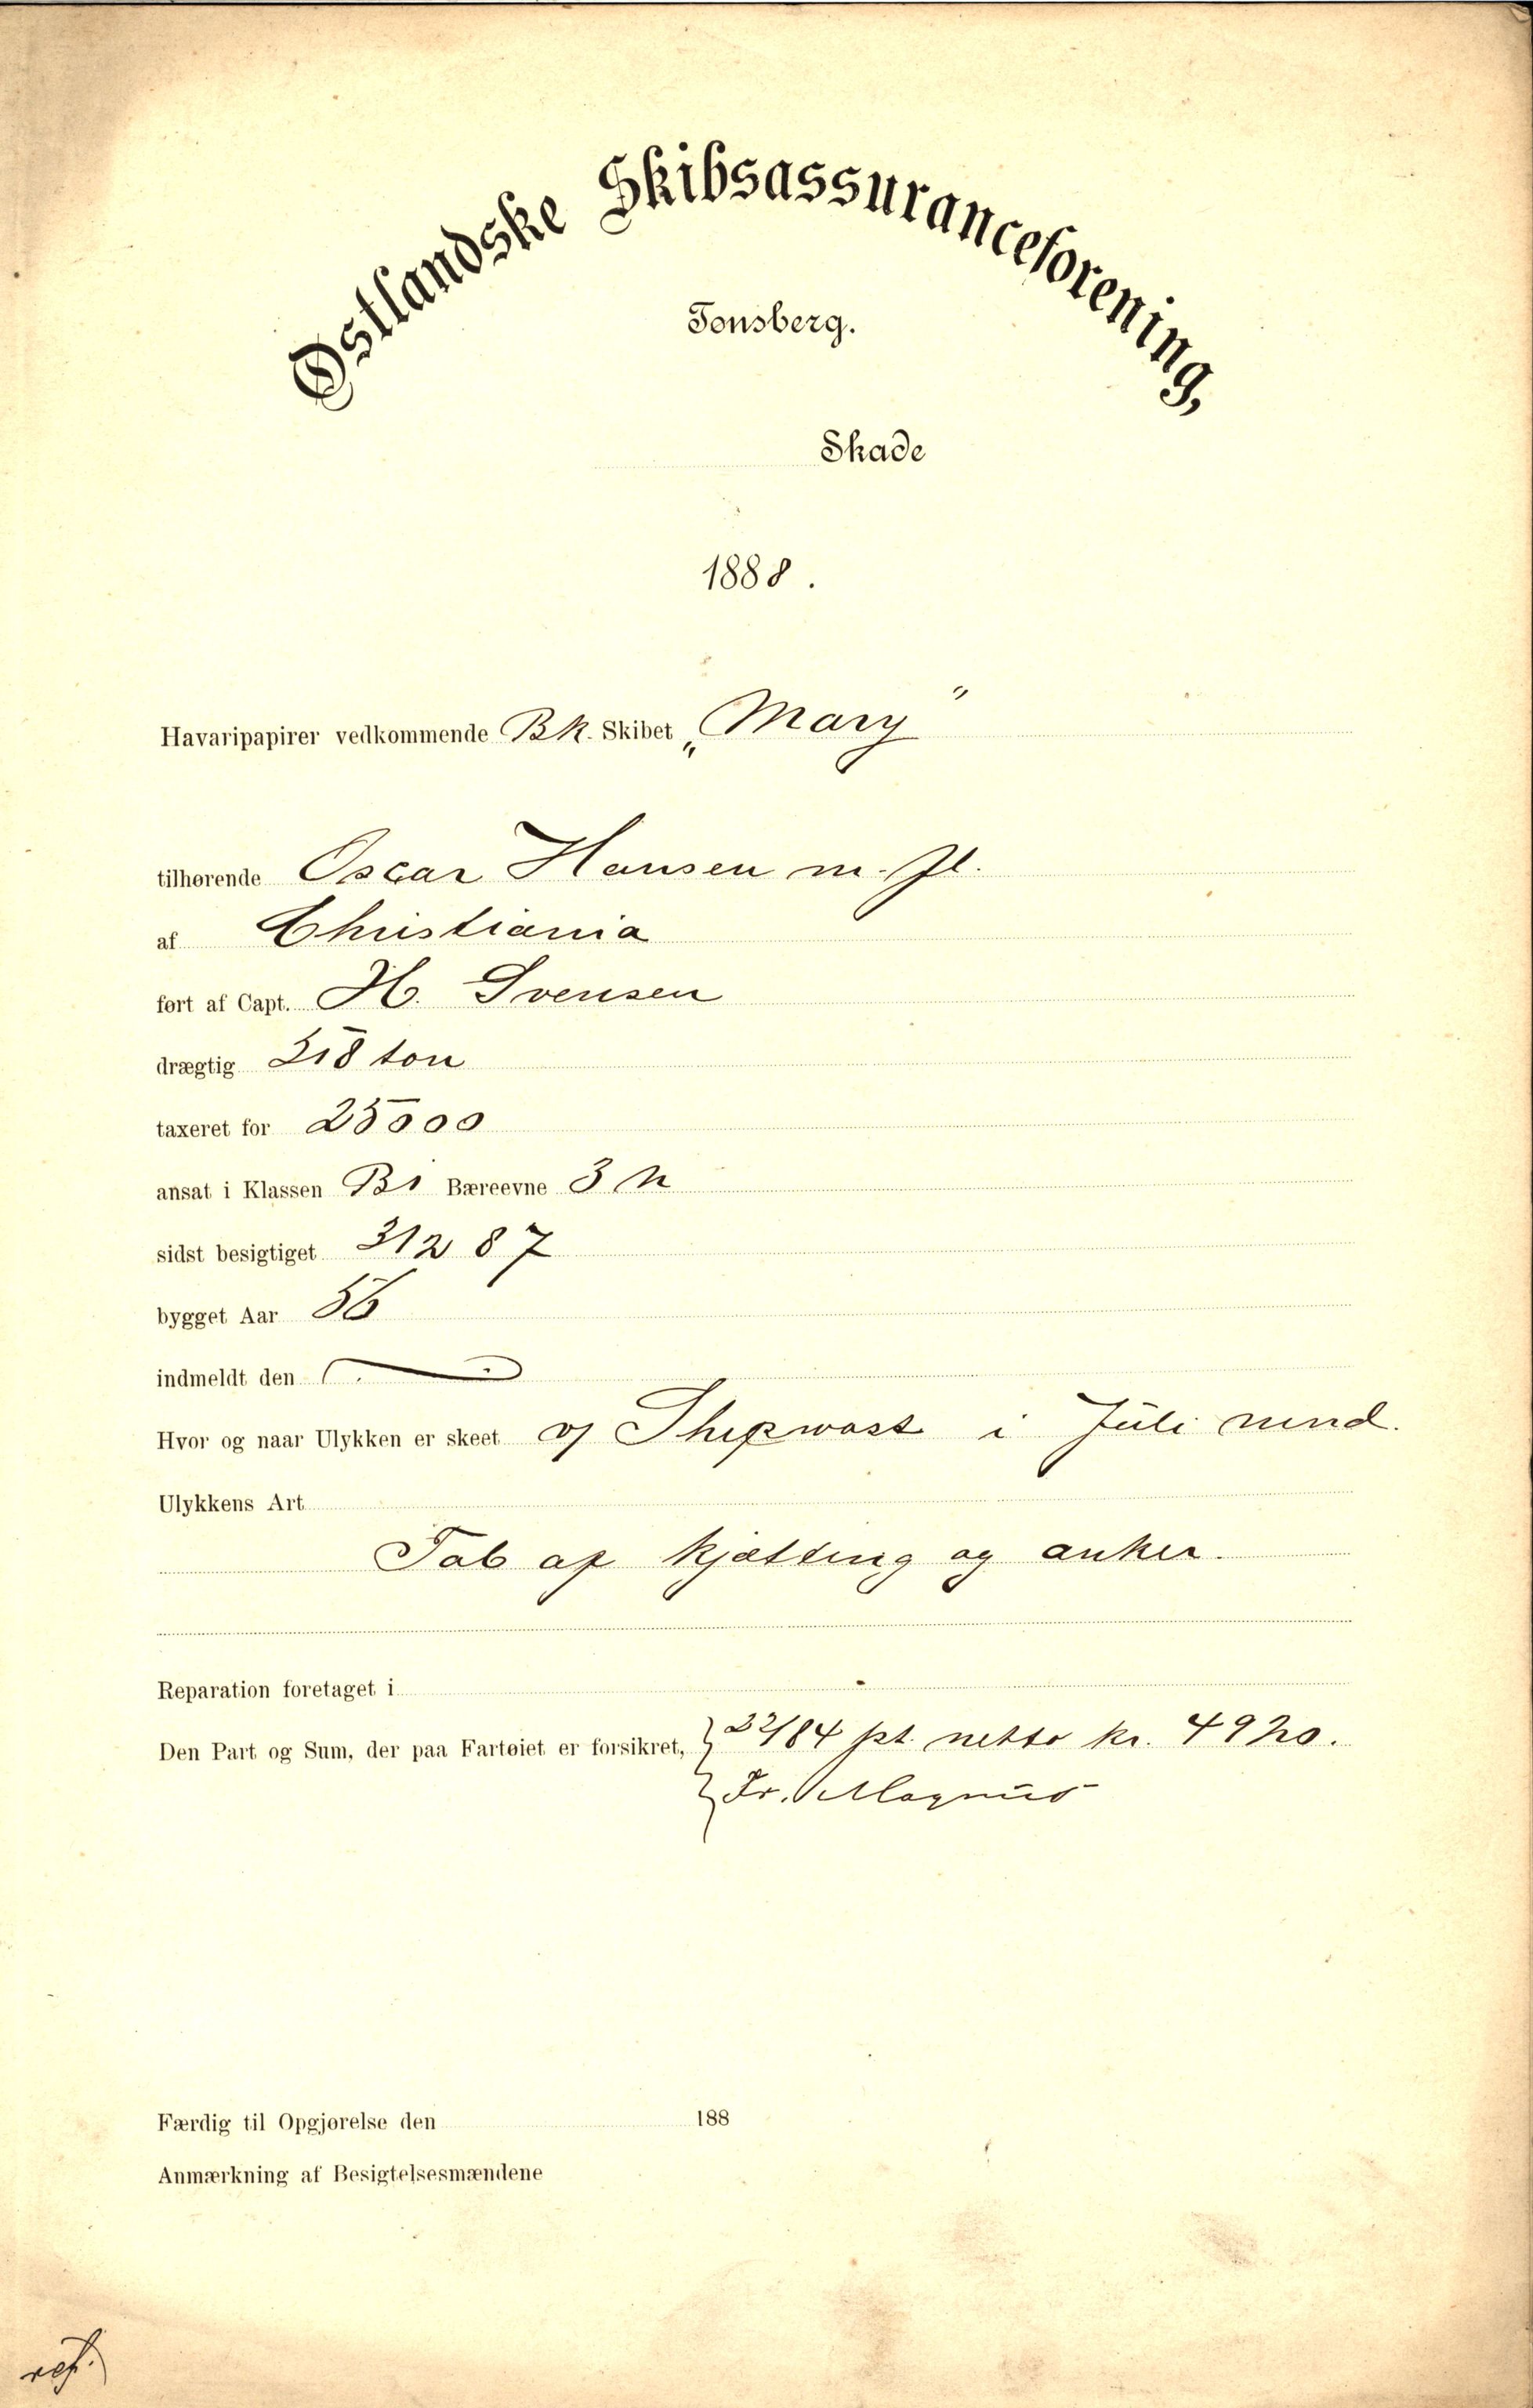 Østlandske Skibsassuranceforening,
Tønsberg.
Skade
1888.
Havaripapirer vedkommende Bk. Skibet „Mary"
tilhørende Oscar Hansen m. fl.
af Christiania
ført af Capt. H. Svensen
drægtig 318 ton
taxeret for 25000
ansat i Klassen B1 Bæreevne 3
sidst besigtiget 87
bygget Aar 56
indmeldt den
Hvor og naar Ulykken er skeet v/ i Juli mnd.
Ulykkens Art
Tab af kjætting og anker.
Reparation foretaget i
Den Part og Sum, der paa Fartøiet er forsikret, 22/84 pt. netto kr. 4920.
Fr. Magnus
Færdig til Opgjørelse den 188
Anmærkning af Besigtelsesmændene